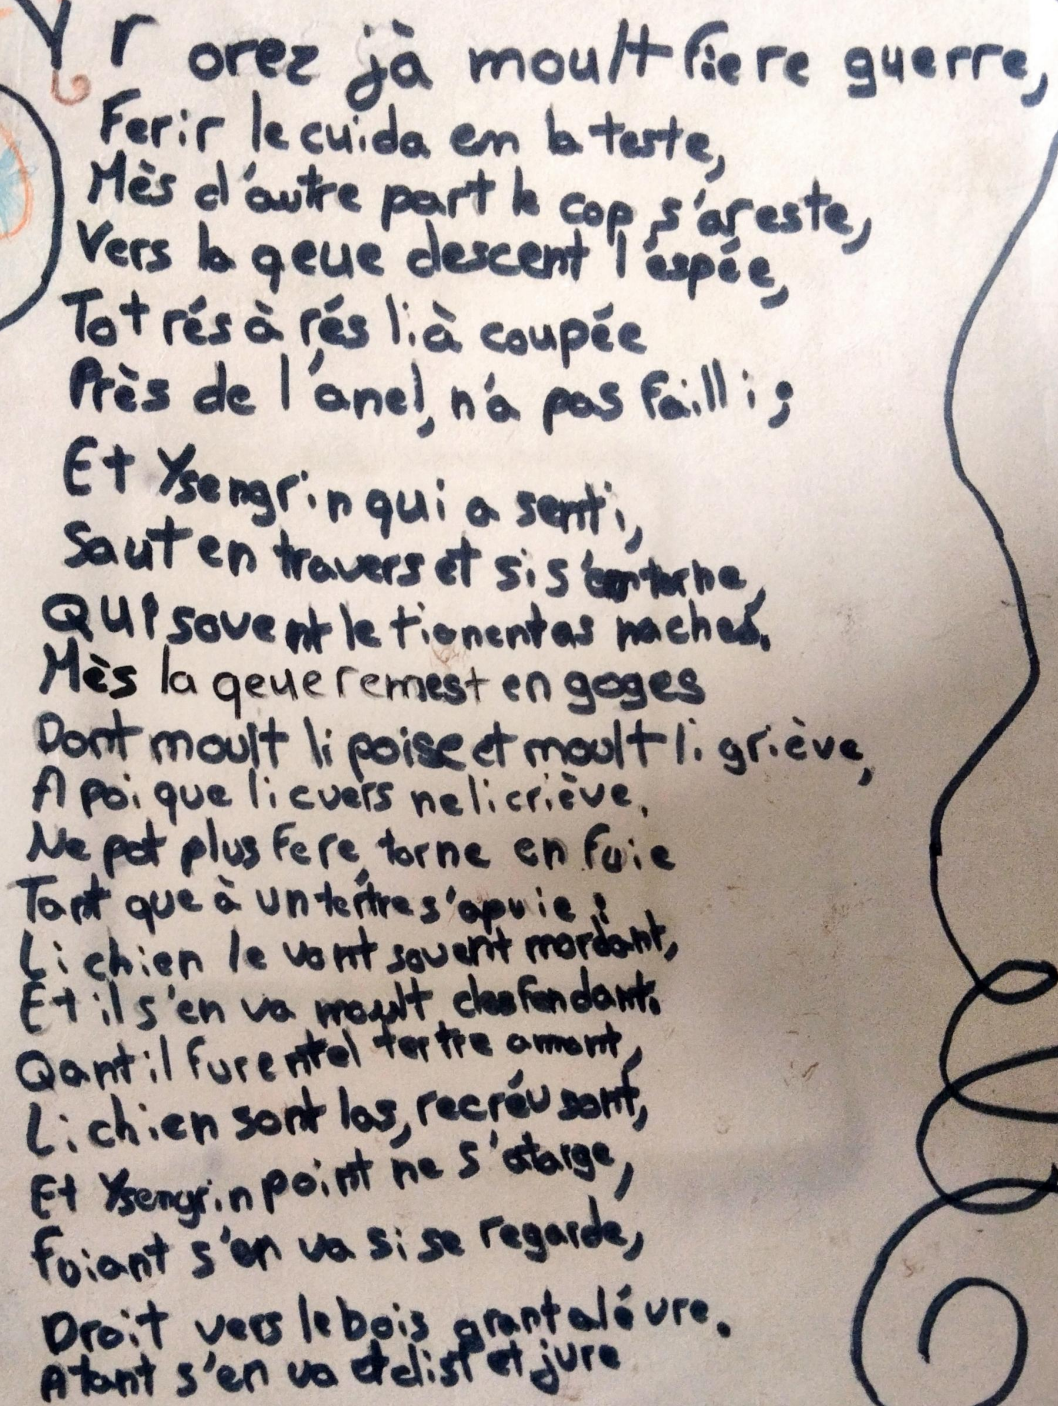 Yr orez jà moult fiere guerre,
Ferir le cuida en la teste,
Mès d'autre part le cop s'areste,
Vers la qeue descent l'espée,
Tot rés à rés li à coupée
Près de l'anel, n'a pas failli;
Et Ysengrin qui a senti,
Saut en travers et si s'entorne,
Qui sovent le tienent as naches.
Mès la qeue remest en goges
Dont moult li poise et moult li griève,
A poi que li cuers ne li criève.
Ne pot plus fere, torne en fuie
Tant que à un tertre s'apuie:
Li chien le vont sovent mordant,
Et il s'en va moult desfendant.
Qant il furent el tertre amont,
Li chien sont las, recréu sont,
Et Ysengrin point ne s'atarge,
Foiant s'en va si se regarde,
Droit vers le bois grant aléure.
Atant s'en va et dist et jure